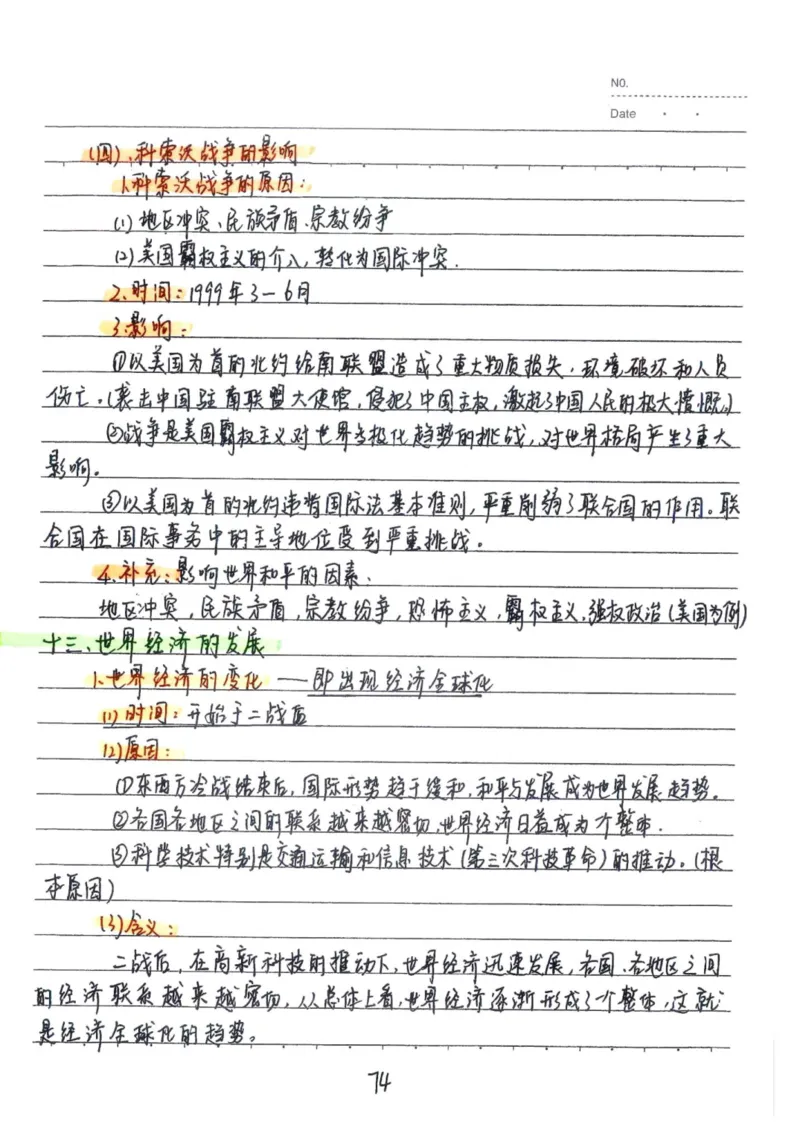 NO.
Date
(四)、科索沃战争的影响
1.科索沃战争的原因：
(1) 地区冲突、民族矛盾、宗教纷争
(2)美国霸权主义的介入，转化为国际冲突.
2.时间：1999年3—6月
3.影响：
①以美国为首的北约给南联盟造成了重大物质损失，环境破坏和人员
伤亡。(袭击中国驻南联盟大使馆，侵犯了中国主权，激起了中国人民的极大愤慨。)
②战争是美国霸权主义对世界多极化趋势的挑战，对世界格局产生了重大
影响。
③以美国为首的北约违背国际法基本准则，严重削弱了联合国的作用。联
合国在国际事务中的主导地位受到严重挑战。
4.补充：影响世界和平的因素、
地区冲突，民族矛盾，宗教纷争，恐怖主义，霸权主义、强权政治(美国为例)
十三、世界经济的发展
1.世界经济的变化 —— 即出现经济全球化
(1)时间：开始于二战后
(2)原因：
①东西方冷战结束后，国际形势趋于缓和，和平与发展成为世界发展趋势。
②各国各地区之间的联系越来越密切，世界经济日益成为个整体.
③科学技术特别是交通运输和信息技术(第三次科技革命)的推动。(根
本原因)
(3)含义：
二战后，在高新科技的推动下，世界经济迅速发展，各国、各地区之间
的经济联系越来越密切，从总体上看，世界经济逐渐形成了个整体，这就
是经济全球化的趋势。
74